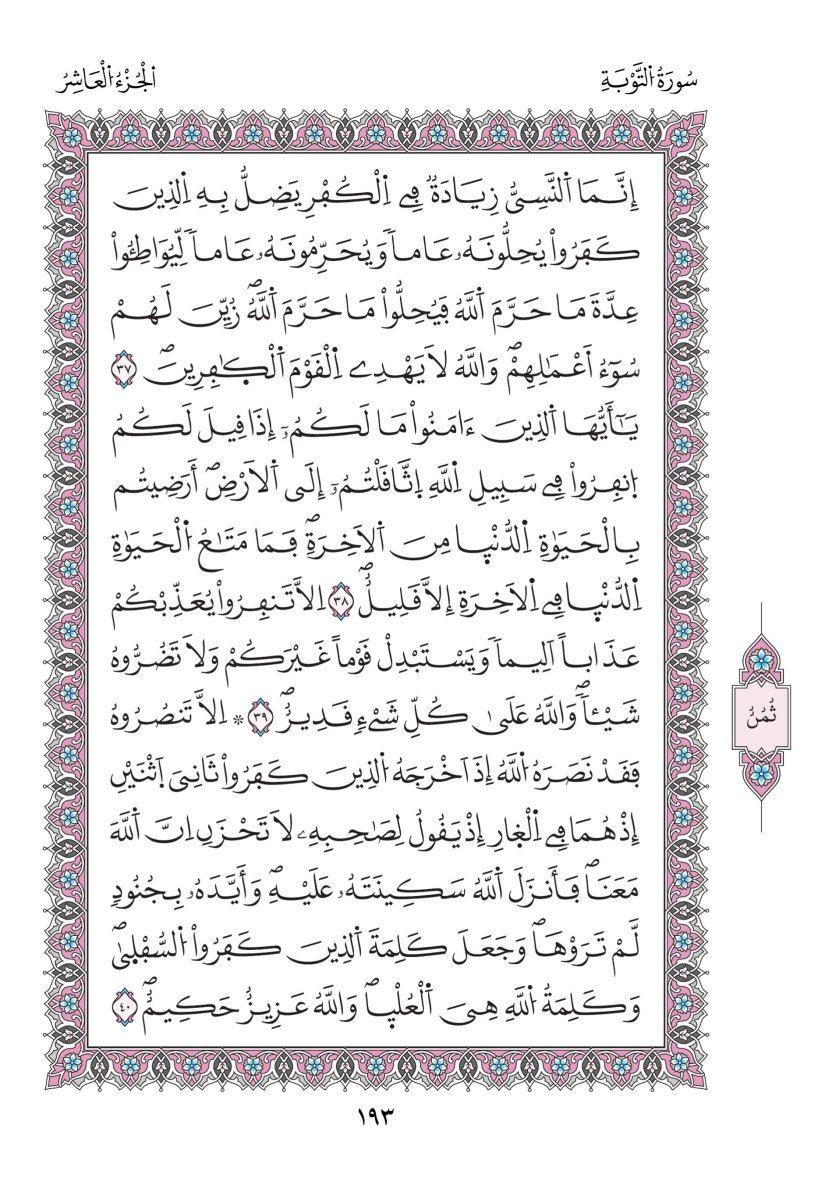 سُورَةُ التَّوْبَةِ
اَلْجُزْءُ الْعَاشِرُ
إِنَّمَا اَ۬لنَّسِيُّ زِيَادَةٞ فِے اِ۬لْكُفْرِ يَضِلُّ بِهِ اِ۬لذِينَ
كَفَرُواْ يُحِلُّونَهُۥ عَاماٗ وَيُحَرِّمُونَهُۥ عَاماٗ لِّيُوَاطِـُٔواْ
عِدَّةَ مَا حَرَّمَ اَ۬للَّهُ فَيُحِلُّواْ مَا حَرَّمَ اَ۬للَّهُۖ زُيِّنَ لَهُمْ
سُوٓءُ اَعْمَٰلِهِمْۖ وَاللَّهُ لَا يَهْدِے اِ۬لْقَوْمَ اَ۬لْكٰ۪فِرِينَۖ ٣٧
يَٰٓأَيُّهَا اَ۬لذِينَ ءَامَنُواْ مَا لَكُمُۥٓ إِذَا قِيلَ لَكُمُ
اُ۪نفِرُواْ فِے سَبِيلِ اِ۬للَّهِ اِ۪ثَّاقَلْتُمُۥٓ إِلَي اَ۬لَارْضِۖ أَرَضِيتُم
بِالْحَيَوٰةِ اِ۬لدُّنْي۪ا مِنَ اَ۬لَاخِرَةِۖ فَمَا مَتَٰعُ اُ۬لْحَيَوٰةِ
اِ۬لدُّنْي۪ا فِے اِ۬لَاخِرَةِ إِلَّا قَلِيلٌۖ ٣٨ اِلَّا تَنفِرُواْ يُعَذِّبْكُمْ
عَذَاباً اَلِيماٗ وَيَسْتَبْدِلْ قَوْماً غَيْرَكُمْ وَلَا تَضُرُّوهُ
شَيْـٔاٗۖ وَاللَّهُ عَلَيٰ كُلِّ شَےْءٖ قَدِيرٌۖ ٣٩ ۞ اِلَّا تَنصُرُوهُ
فَقَدْ نَصَرَهُ اُ۬للَّهُ إِذَ اَخْرَجَهُ اُ۬لذِينَ كَفَرُواْ ثَانِيَ اَ۪ثْنَيْنِ
إِذْ هُمَا فِے اِ۬لْغ۪ارِ إِذْ يَقُولُ لِصَٰحِبِهِۦ لَا تَحْزَنِ اِنَّ اَ۬للَّهَ
مَعَنَاۖ فَأَنزَلَ اَ۬للَّهُ سَكِينَتَهُۥ عَلَيْهِۖ وَأَيَّدَهُۥ بِجُنُودٖ
لَّمْ تَرَوْهَاۖ وَجَعَلَ كَلِمَةَ اَ۬لذِينَ كَفَرُواْ اُ۬لسُّفْل۪ىٰۖ
وَكَلِمَةُ اُ۬للَّهِ هِيَ اَ۬لْعُلْي۪اۖ وَاللَّهُ عَزِيزٌ حَكِيمٌۖ ٤٠
ثُمُنُ
١٩٣